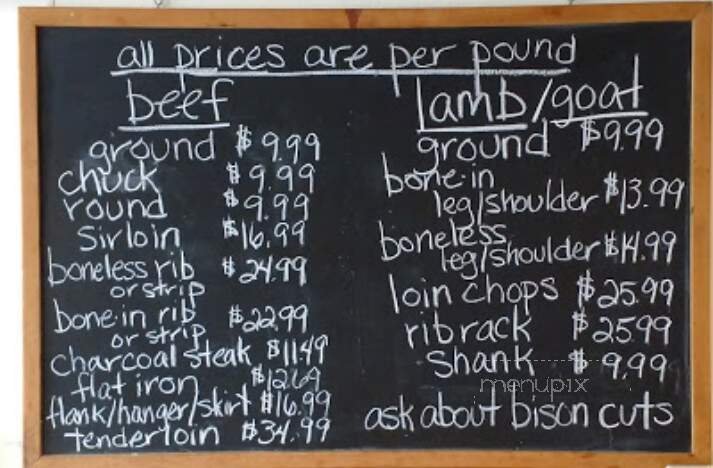 all prices are per pound
beef
ground $9.99
chuck $9.99
round $9.99
sirloin $16.99
boneless rib $24.99
or strip
bone in rib $22.99
or strip
charcoal steak $11.49
flat iron $12.69
flank/hanger/skirt $16.99
tenderloin $34.99
lamb/goat
ground $9.99
bone-in
leg/shoulder $13.99
boneless
leg/shoulder $14.99
loin chops $25.99
rib rack $25.99
shank $9.99
menupix
ask about bison cuts